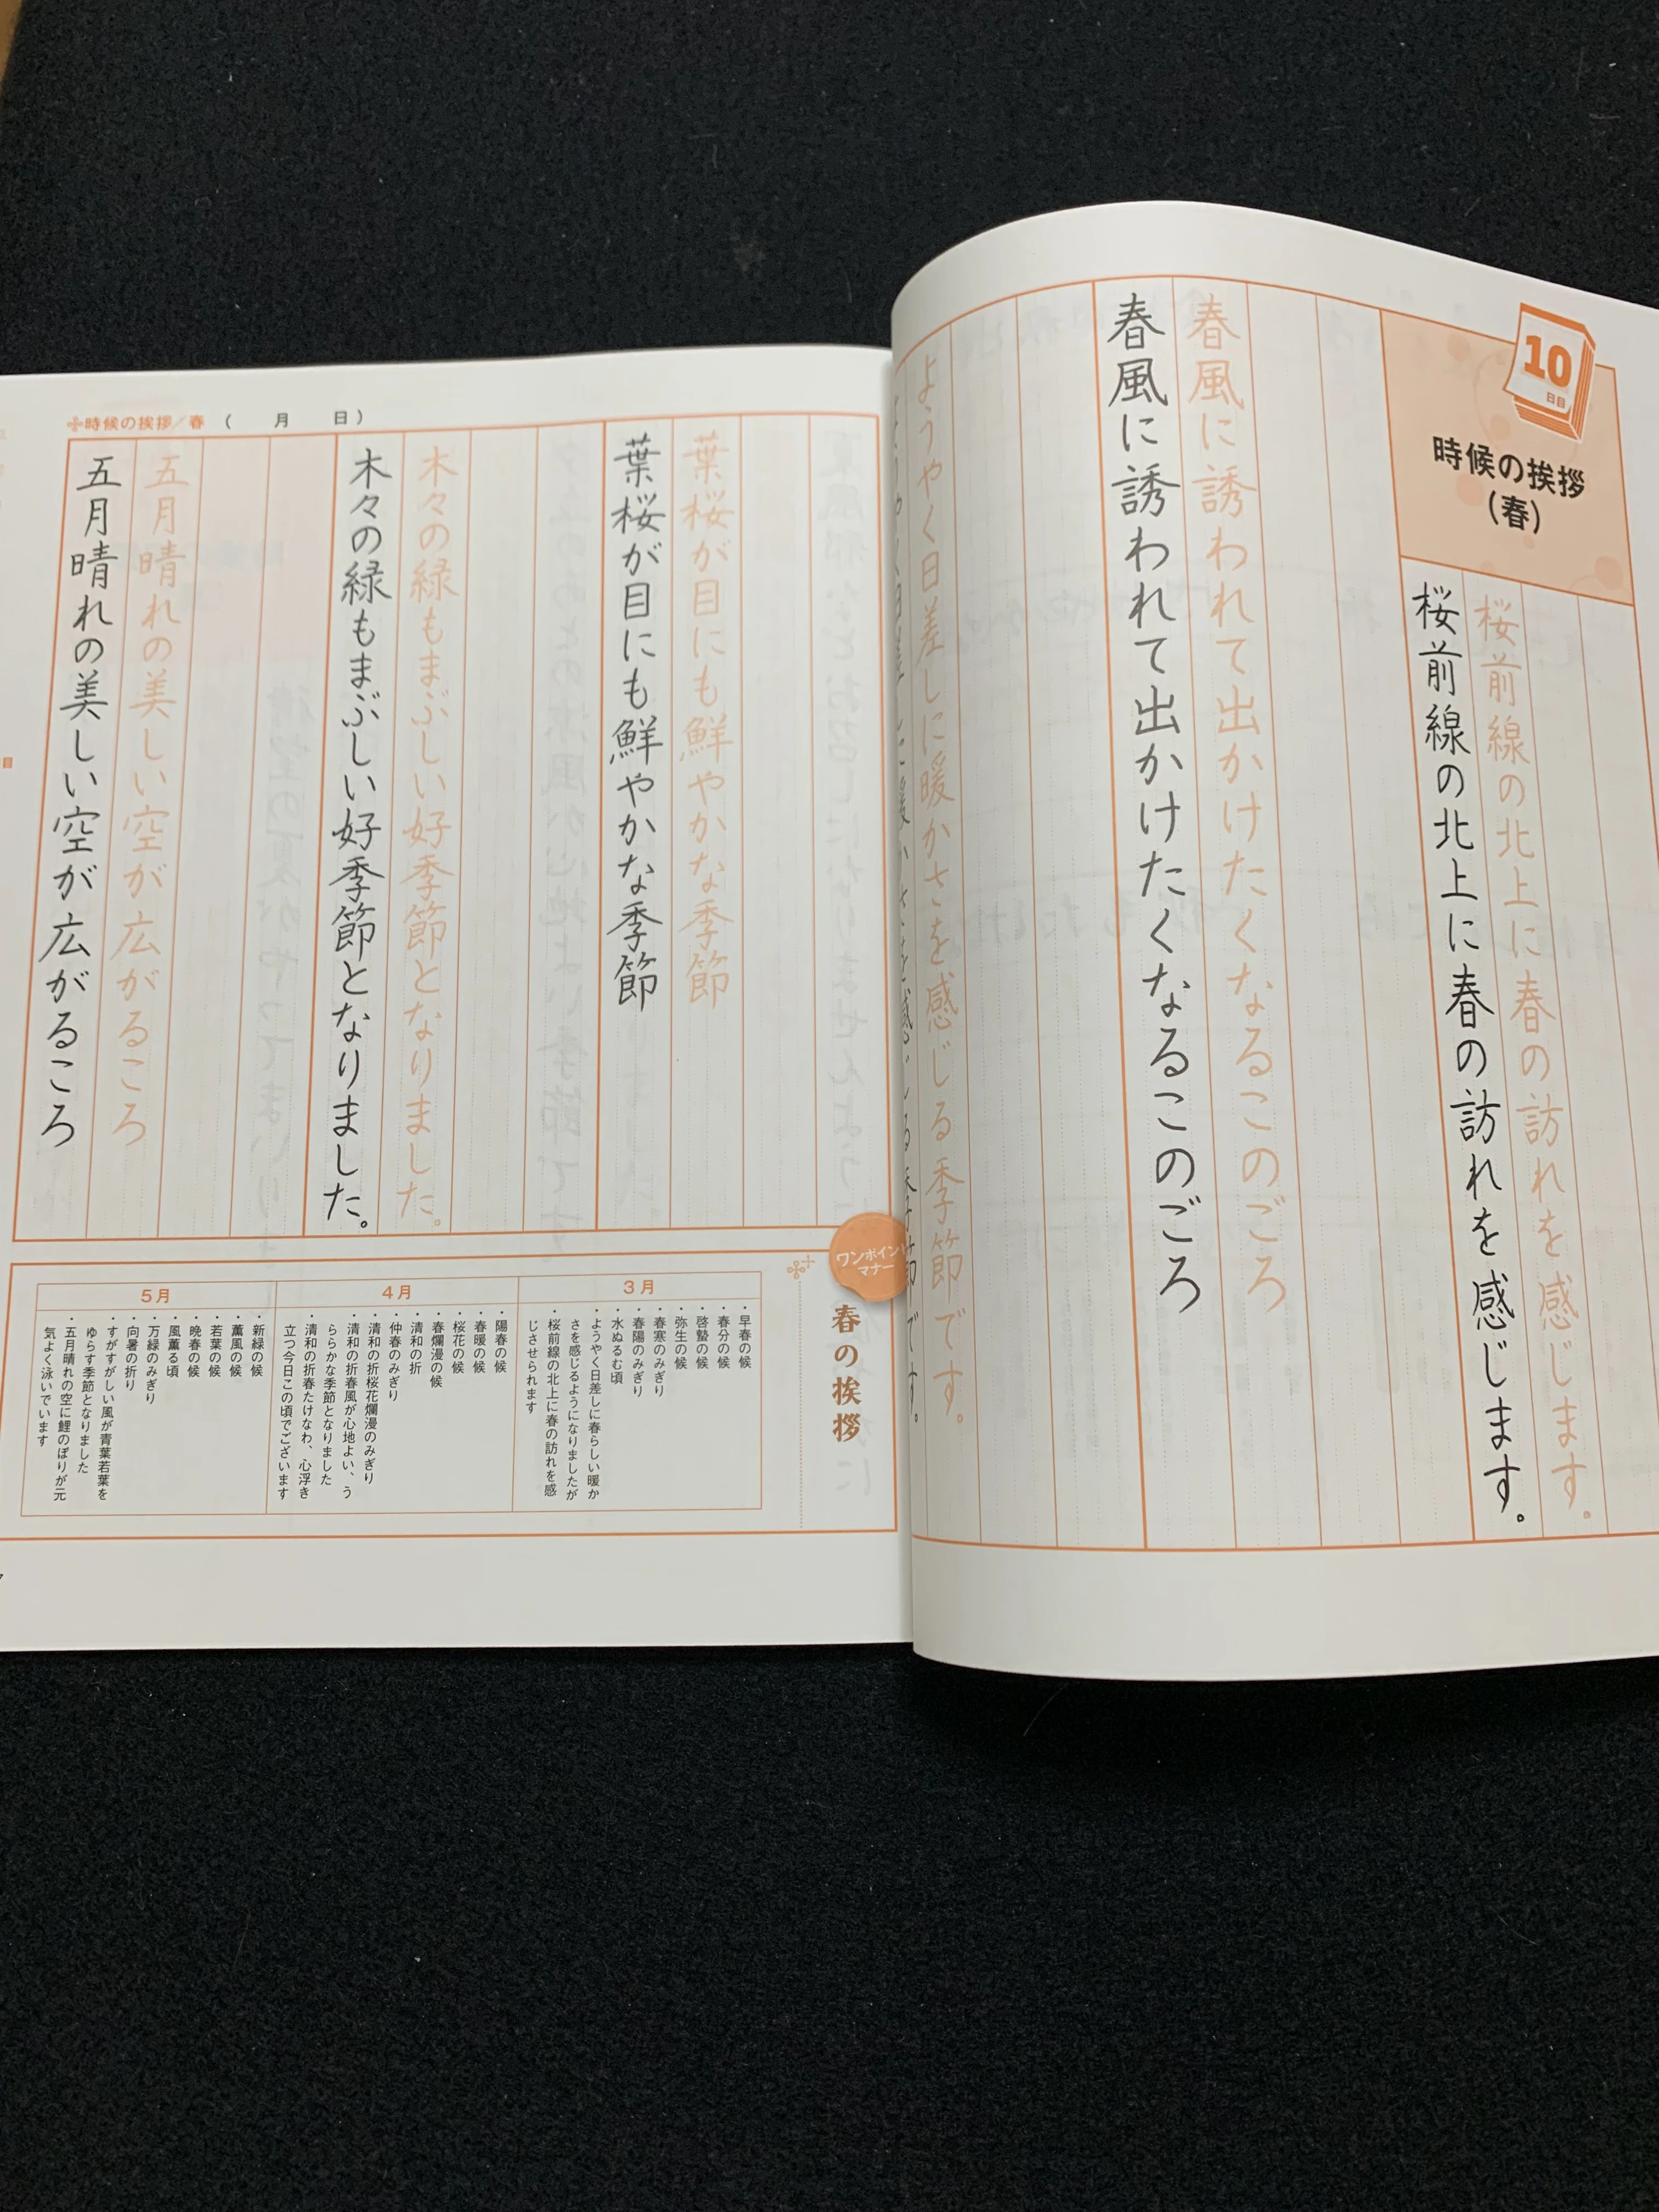 10
日目
時候の挨拶
（春）
桜前線の北上に春の訪れを感じます。
桜前線の北上に春の訪れを感じます。
春風に誘われて出かけたくなるこのごろ
春風に誘われて出かけたくなるこのごろ
ようやく日差しに暖かさを感じる季節です。
ようやく日差しに暖かさを感じる季節です。
時候の挨拶／春（　　月　　日）
葉桜が目にも鮮やかな季節
葉桜が目にも鮮やかな季節
木々の緑もまぶしい好季節となりました。
木々の緑もまぶしい好季節となりました。
五月晴れの美しい空が広がるころ
五月晴れの美しい空が広がるころ
ワンポイント
マナー
春の挨拶
3月
・早春の候
・春分の候
・啓蟄の候
・弥生の候
・春寒のみぎり
・春陽のみぎり
・水ぬるむ頃
・ようやく日差しに春らしい暖か
さを感じるようになりましたが
・桜前線の北上に春の訪れを感
じさせられます
4月
・陽春の候
・春暖の候
・桜花の候
・春爛漫の候
・清和の折
・仲春のみぎり
・清和の折桜花爛漫のみぎり
・清和の折春風が心地よい、う
ららかな季節となりました
・清和の折春たけなわ、心浮き
立つ今日この頃でございます
5月
・新緑の候
・薫風の候
・若葉の候
・晩春の候
・風薫る頃
・万緑のみぎり
・向暑の折り
・すがすがしい風が青葉若葉を
ゆらす季節となりました
・五月晴れの空に鯉のぼりが元
気よく泳いでいます